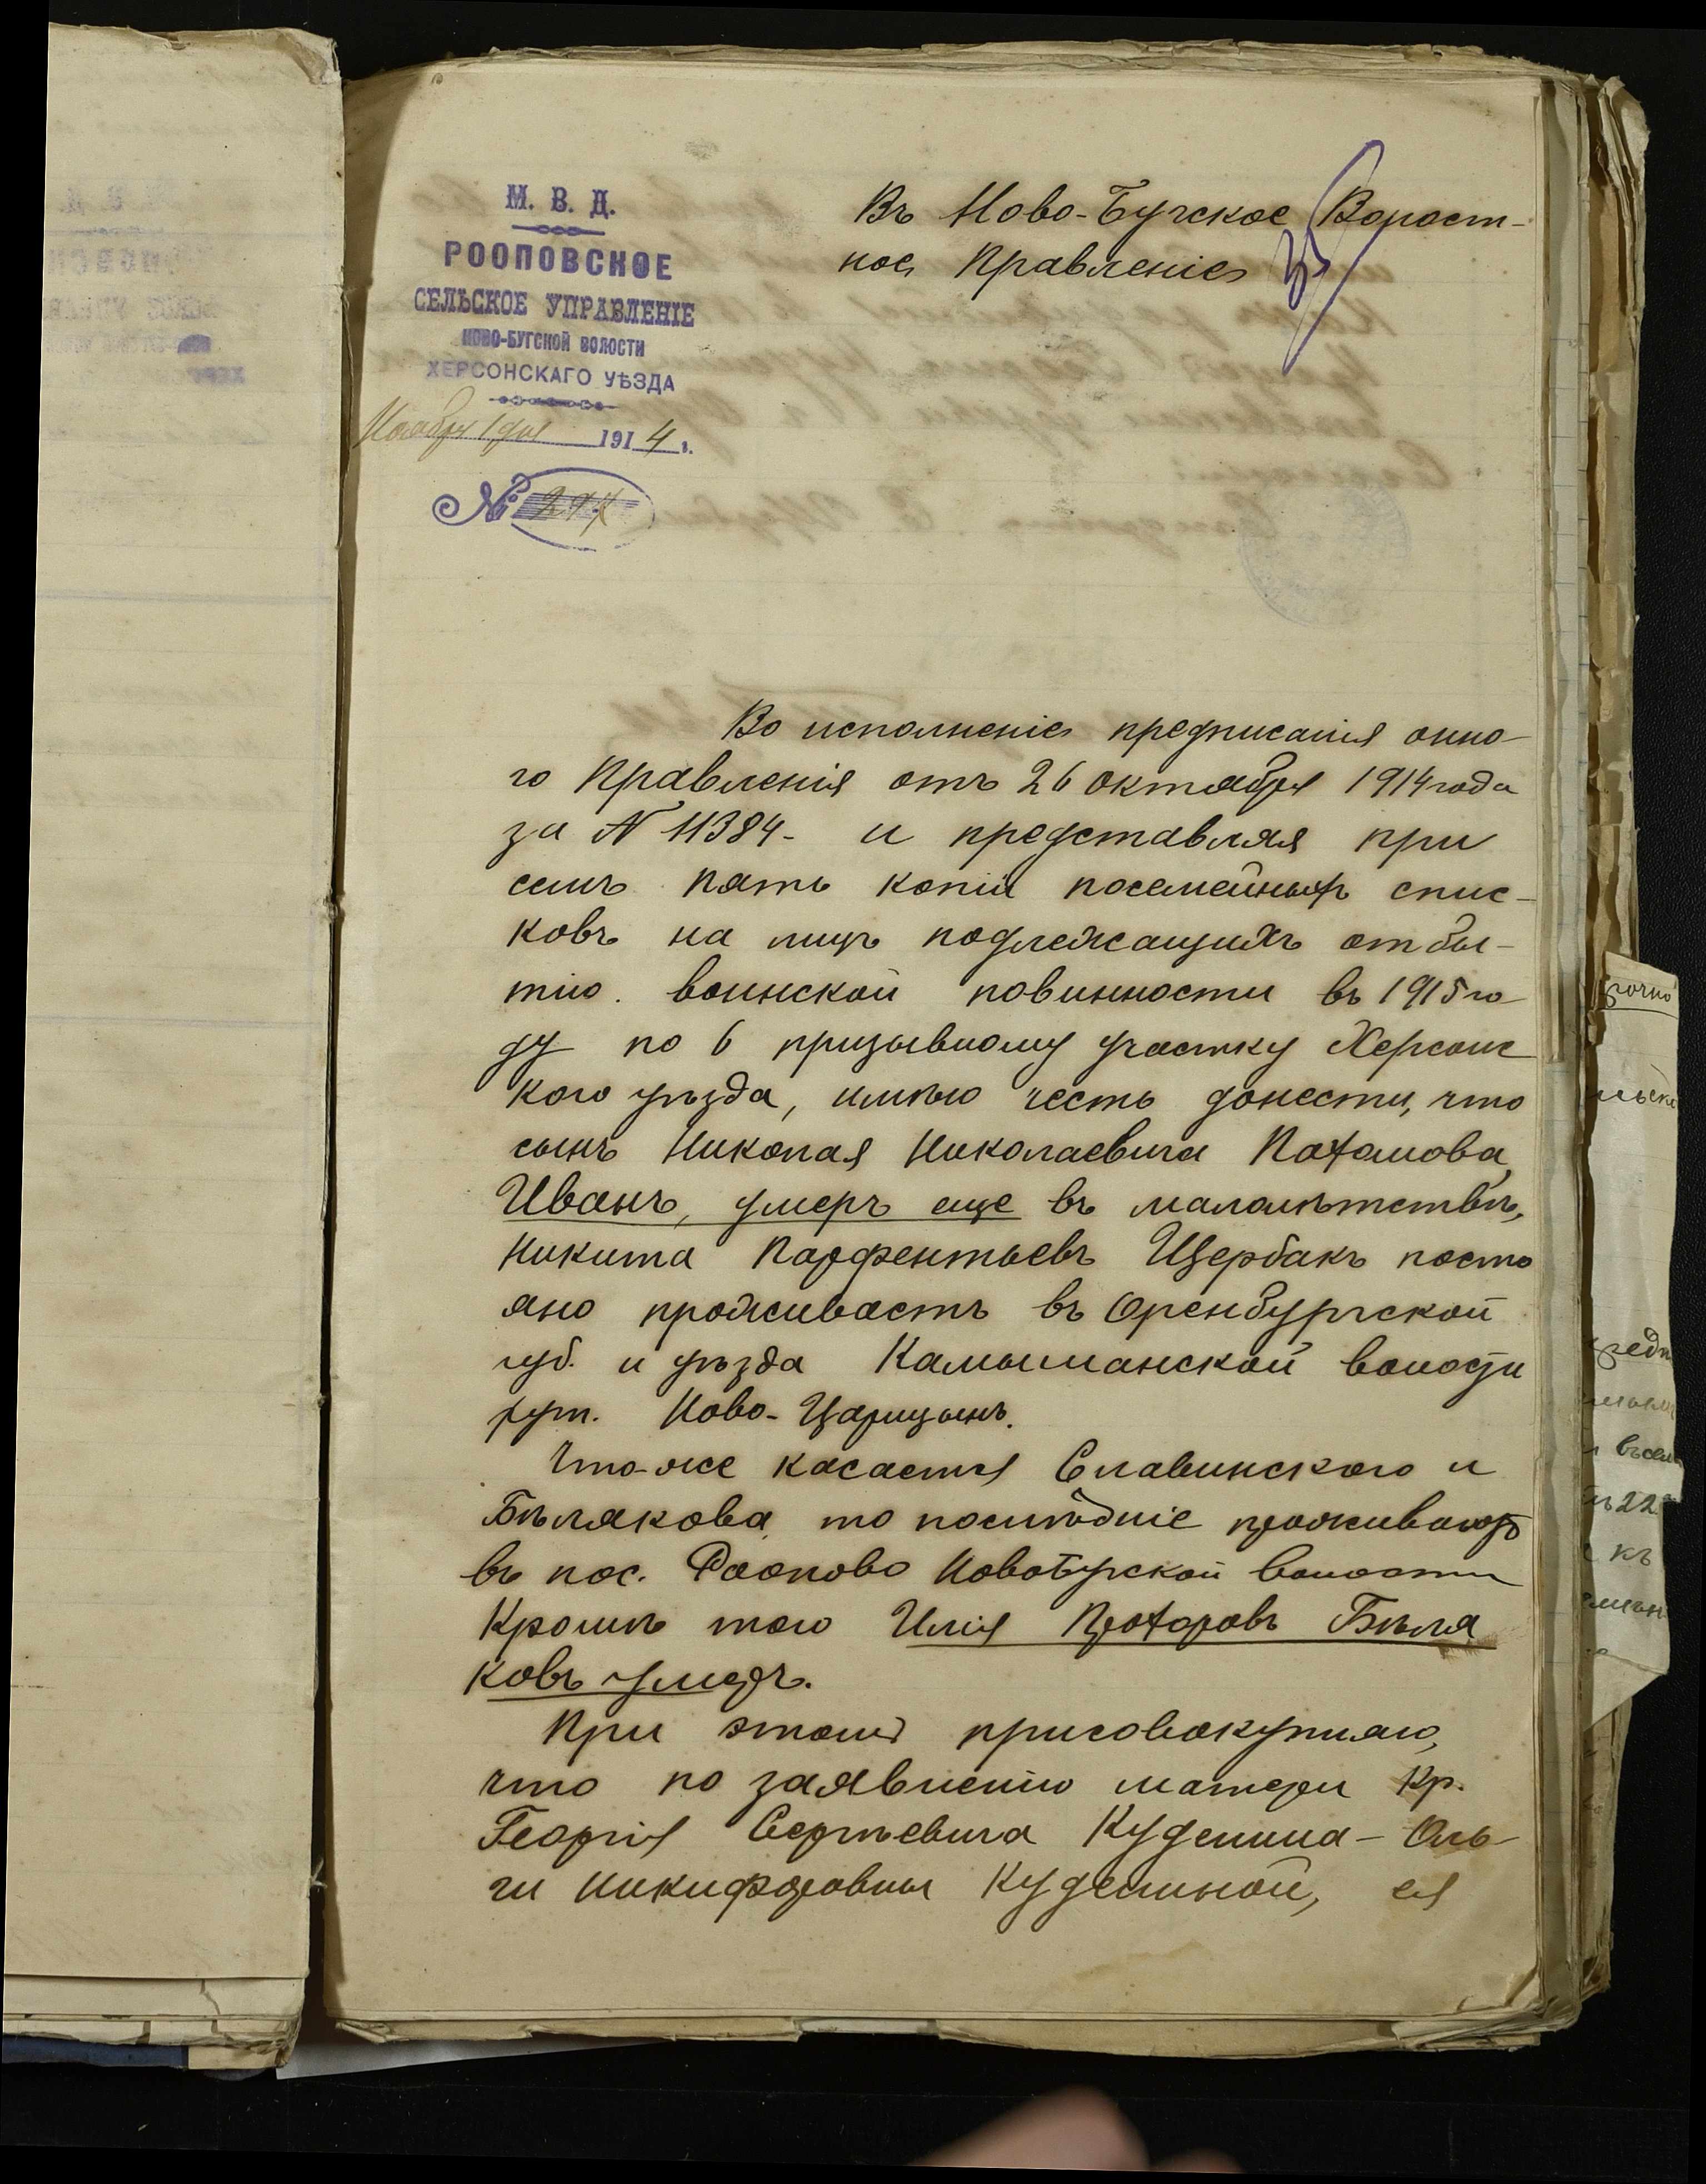 М. В. Д.
РООПОВСКОЕ
СЕЛЬСКОЕ УПРАВЛЕНІЕ
НОВО-БУГСКОЙ ВОЛОСТИ
ХЕРСОНСКАГО УѢЗДА
Ноября 1 дня 1914 г.
№ 277
Въ Ново-Бугское Волост-
ное Правленіе
Во исполненіе предписанія онно-
го Правленія отъ 26 октября 1914 года
за N 11384- и представляя при
семъ пять копій посемейныхъ спис-
ковъ на лицъ подлежащихъ отбы-
тію воинской повинности въ 1915 го
ду по 6 призывному участку Херсонс
кого уѣзда, имѣю честь донести, что
сынъ Николая Николаевича Пахомова,
Иванъ, умеръ еще въ малолѣтствѣ,
Никита Парфентьевъ Щербакъ посто
яно проживаетъ въ Оренбургской
губ. и уѣзда волости
хут. Ново-Царицынъ.
Что-же касается Славинского и
Бѣлякова, то послѣдніе проживаютъ
въ пос. Роопово Новобугской волости
Кромѣ того Илія Прохоровъ Бѣля
ковъ умеръ.
При этомъ присовокупляю,
что по заявленію матери Кр.
Георгія Сергѣевича Куделина - Оль-
ги Никифоровны Куделиной, ея
срочно
22
къ